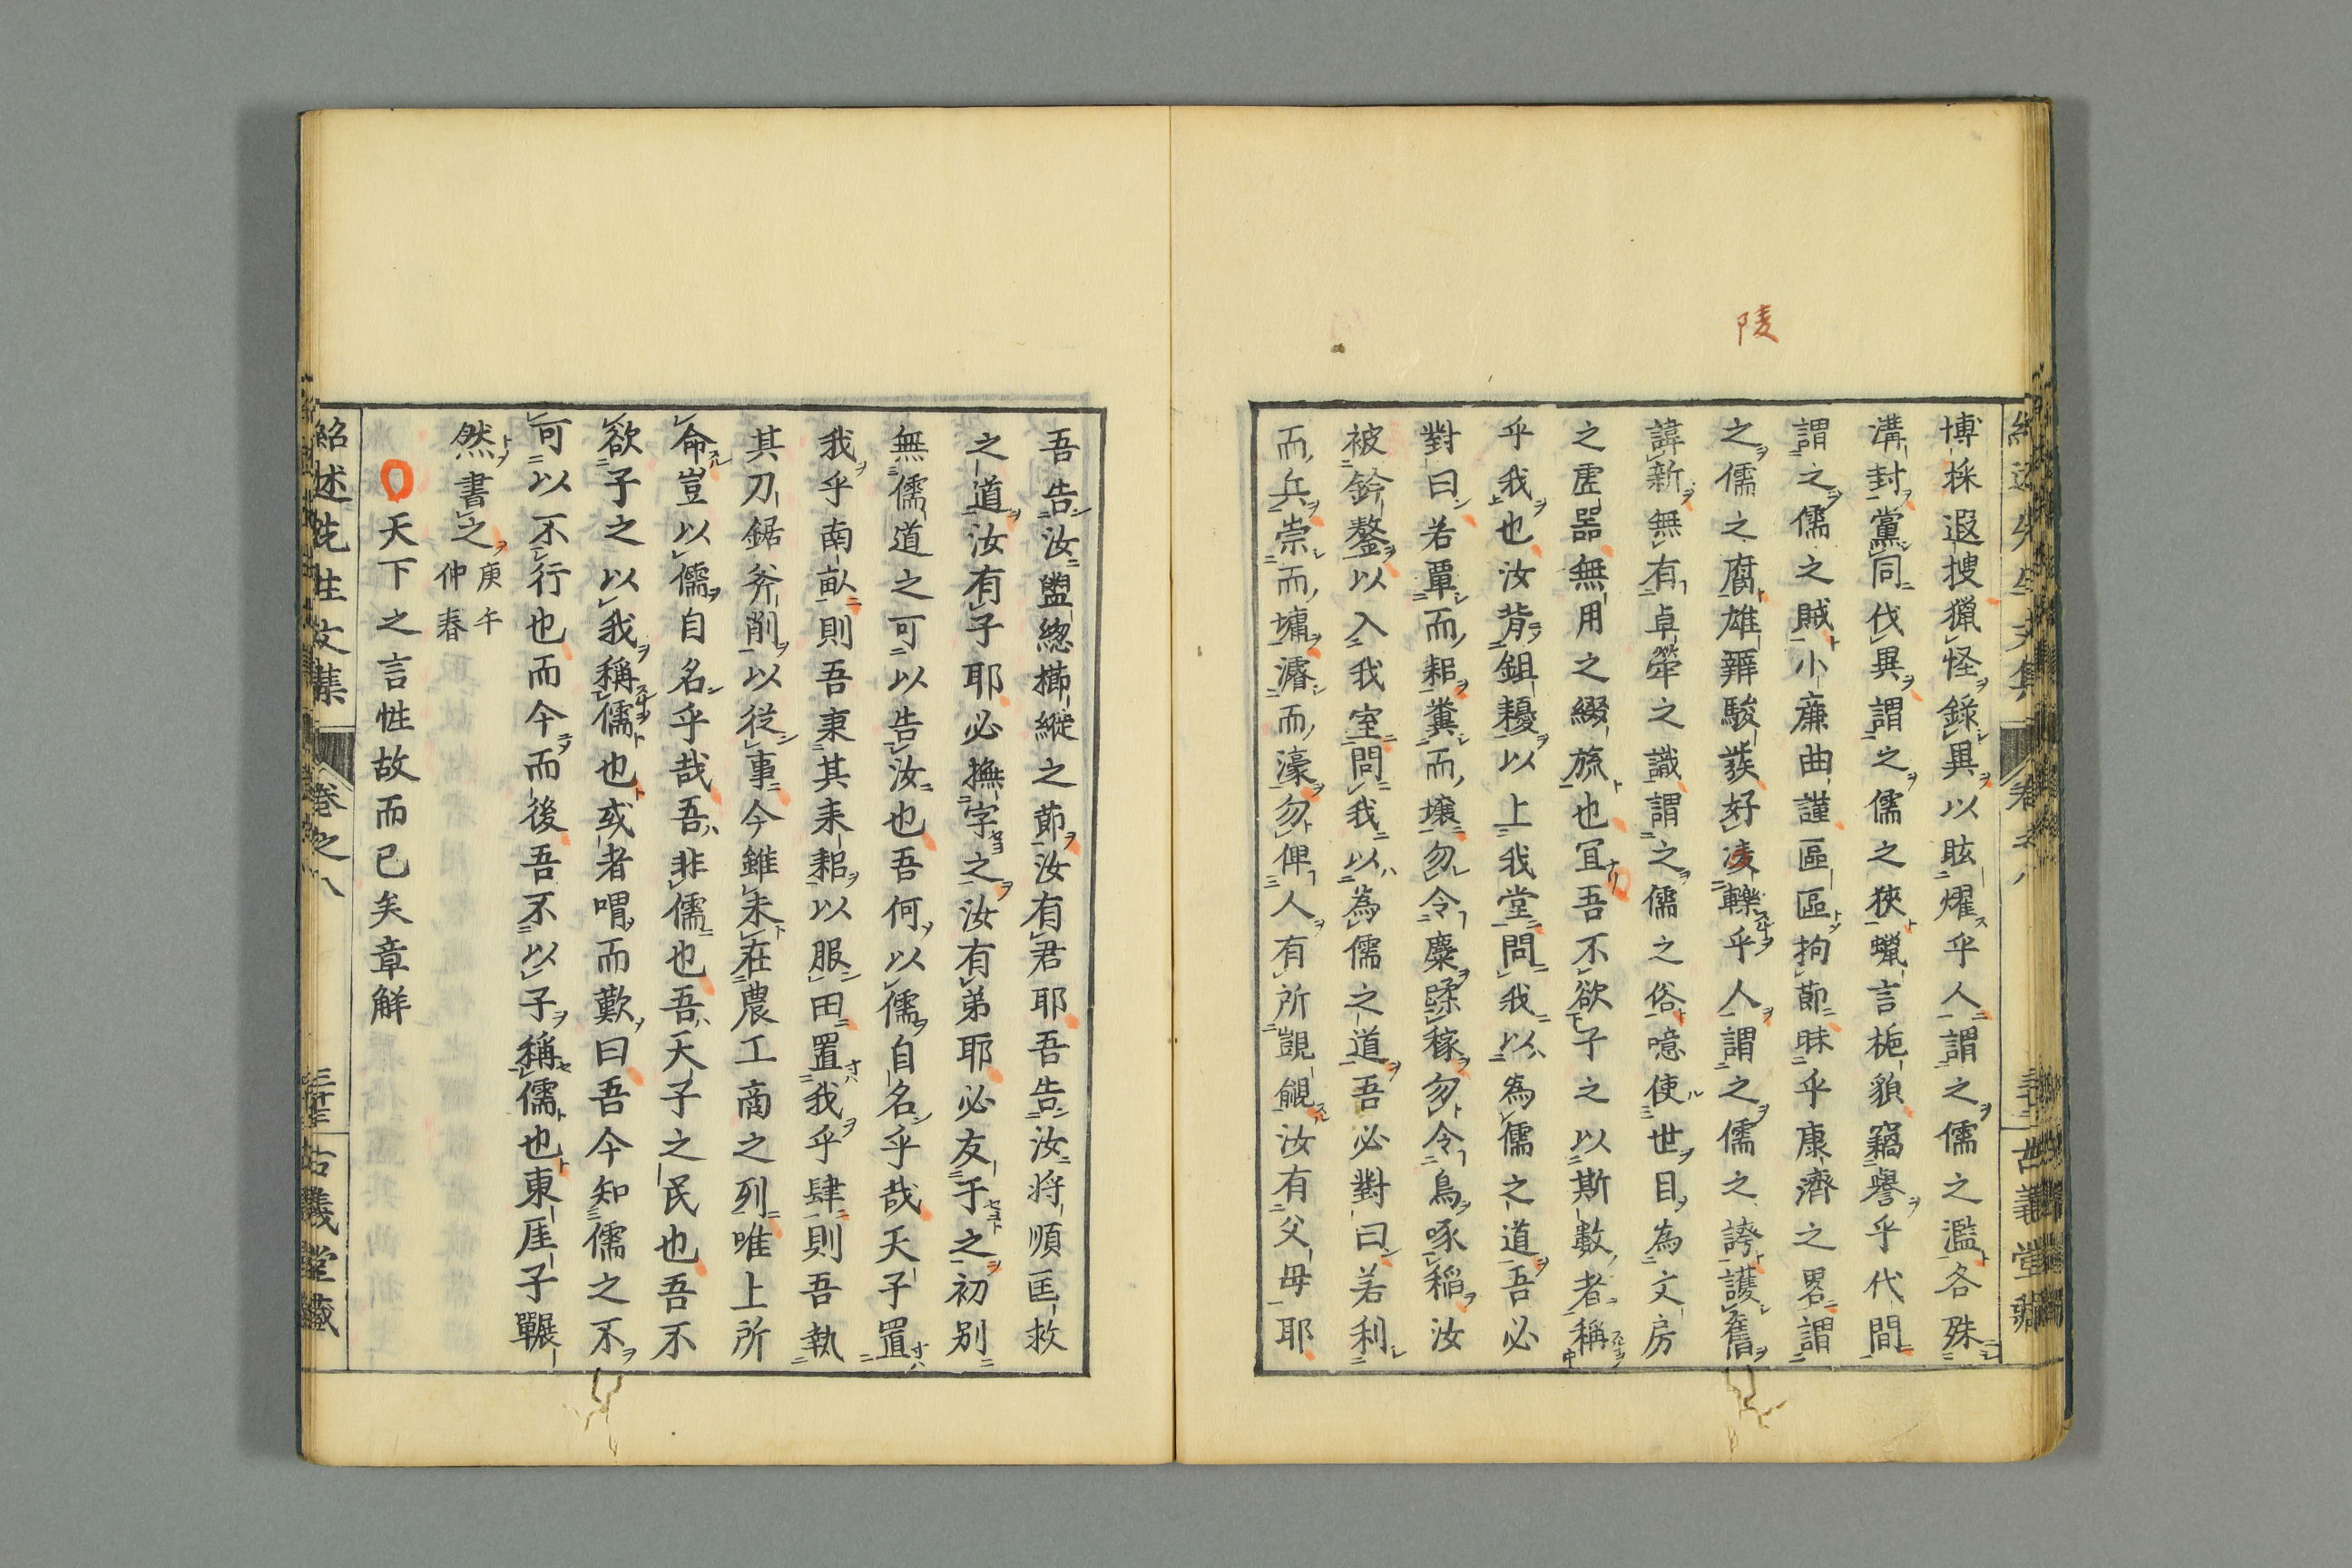 陵
博採遐捜獵怪錄異以眩燿乎人謂之儒之濫各殊
溝封黨同伐異謂之儒之狹蠟言梔貌竊譽乎代間
謂之儒之賊小廉曲謹區區拘節昧乎康濟之畧謂
之儒之腐雄辯駿發好凌轢乎人謂之儒之誇護舊
諱新無有卓犖之識謂之儒之俗噫使世目為文房
之虛器無用之綴旒也冝吾不欲子之以斯數者稱
乎我也汝背鉏耰以上我堂問我以為儒之道吾必
對曰若覃而耜糞而壤勿令麋蹂稼勿令鳥啄稲汝
被鈴鏊以入我室問我以為儒之道吾必對曰若利
而兵崇而墉濬而濠勿俾人有所覬覦汝有父母耶
吾告汝盥總櫛縰之節汝有君耶吾告汝将順匡救
之道汝有子耶必撫字之汝有弟耶必友于之初别
無儒道之可以告汝也吾何以儒自名乎哉天子置
我乎南畝則吾秉其耒耜以服田置我乎肆則吾執
其刀鋸斧削以從事今雖未在農工商之列唯上所
命豈以儒自名乎哉吾非儒也吾天子之民也吾不
欲子之以我稱儒也或者喟而歎曰吾今知儒之不
可以不行也而今而後吾不以子稱儒也東厓子冁
然書之庚午
仲春
天下之言性故而已矣章解
紹述先生文集 卷之八 古義堂藏